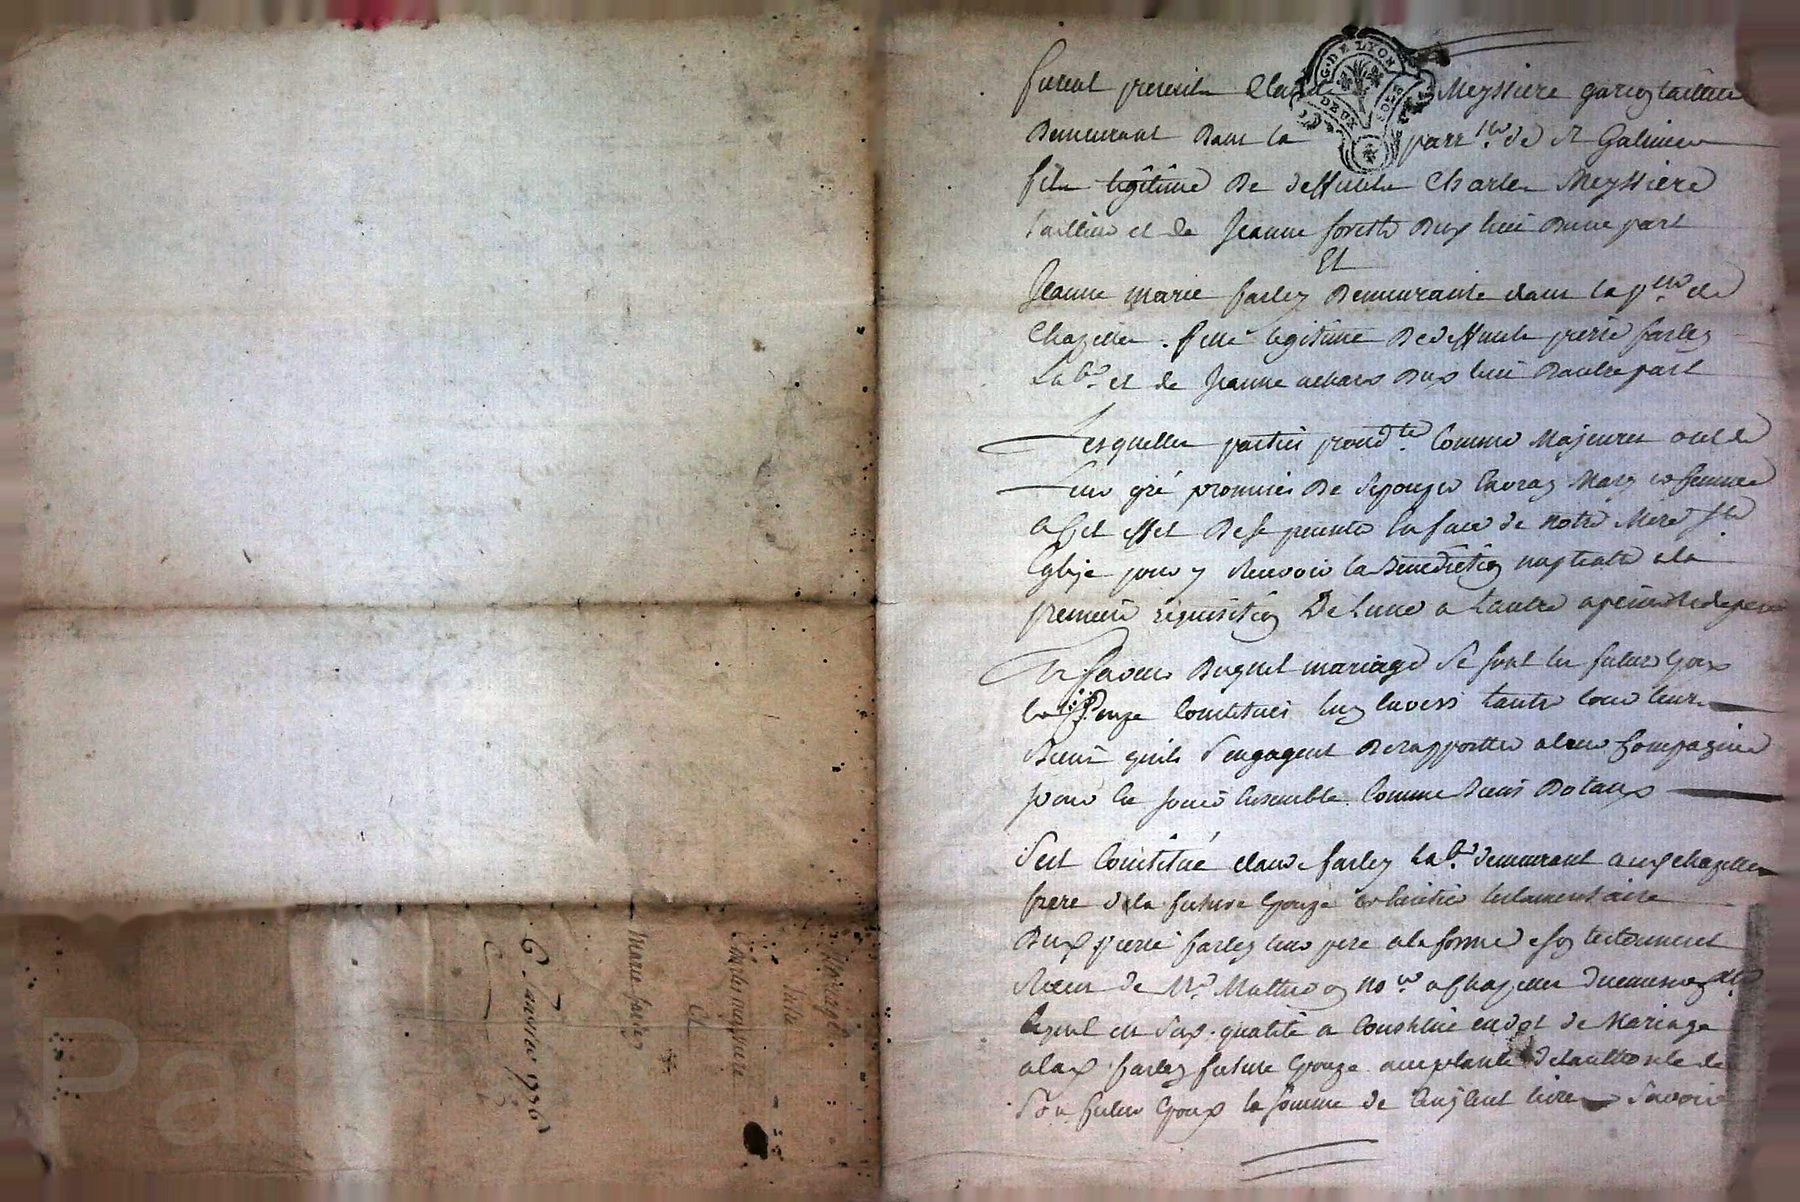 furent presents Claude Meyssiere garçon tailleur
G. DE LYON
DEUX SOLS
Demeurant dans la parr.sse de St Galmier
fils legitime de deffunts Charles Meyssiere
tailleur et de Jeanne D'une part
Et
Jeanne marie farley Demeurante dans la p.sse de
Chazelles. fille legitime de deffunts pierre farley
Lab.r et de Jeanne D'autre part
Lesquelles parties proced.tes Comme Majeures ont de
leur gré promis de s'epouzer En vray Mary et femme
a Cet effet De se presenter En face de notre Mere S.te
Eglize pour y recevoir la Benediction nuptialle a la
premiere requisition De l'une a l'autre a peine de depens
En faveur Duquel mariage se sont les futurs Epoux
et Epouze Constitués l'un Envers l'autre tous leurs
Biens qu'ils s'engagent De rapporter a leur Compagnie
pour En jouir Ensemble Comme Biens Dotaux
S'est Constitué Claude farley Lab.r demeurant auxd. Chazelles
frere de la future Epouze et heritier testamentaire
Dud. pierre farley leur pere a la forme de son testament
Receu de M.e no.re a Chazelles
lequel en sad. qualité a Constitué en dot de Mariage
a lad. farley future Epouze acceptante de l'authorité de
Son futur Epoux la somme de livres Savoir
Mariage
Entre
Charles meyssiere
Et
Marie farley
6. Janvier 1786
Pa